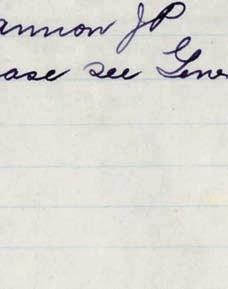 annon JP
ase see Gene